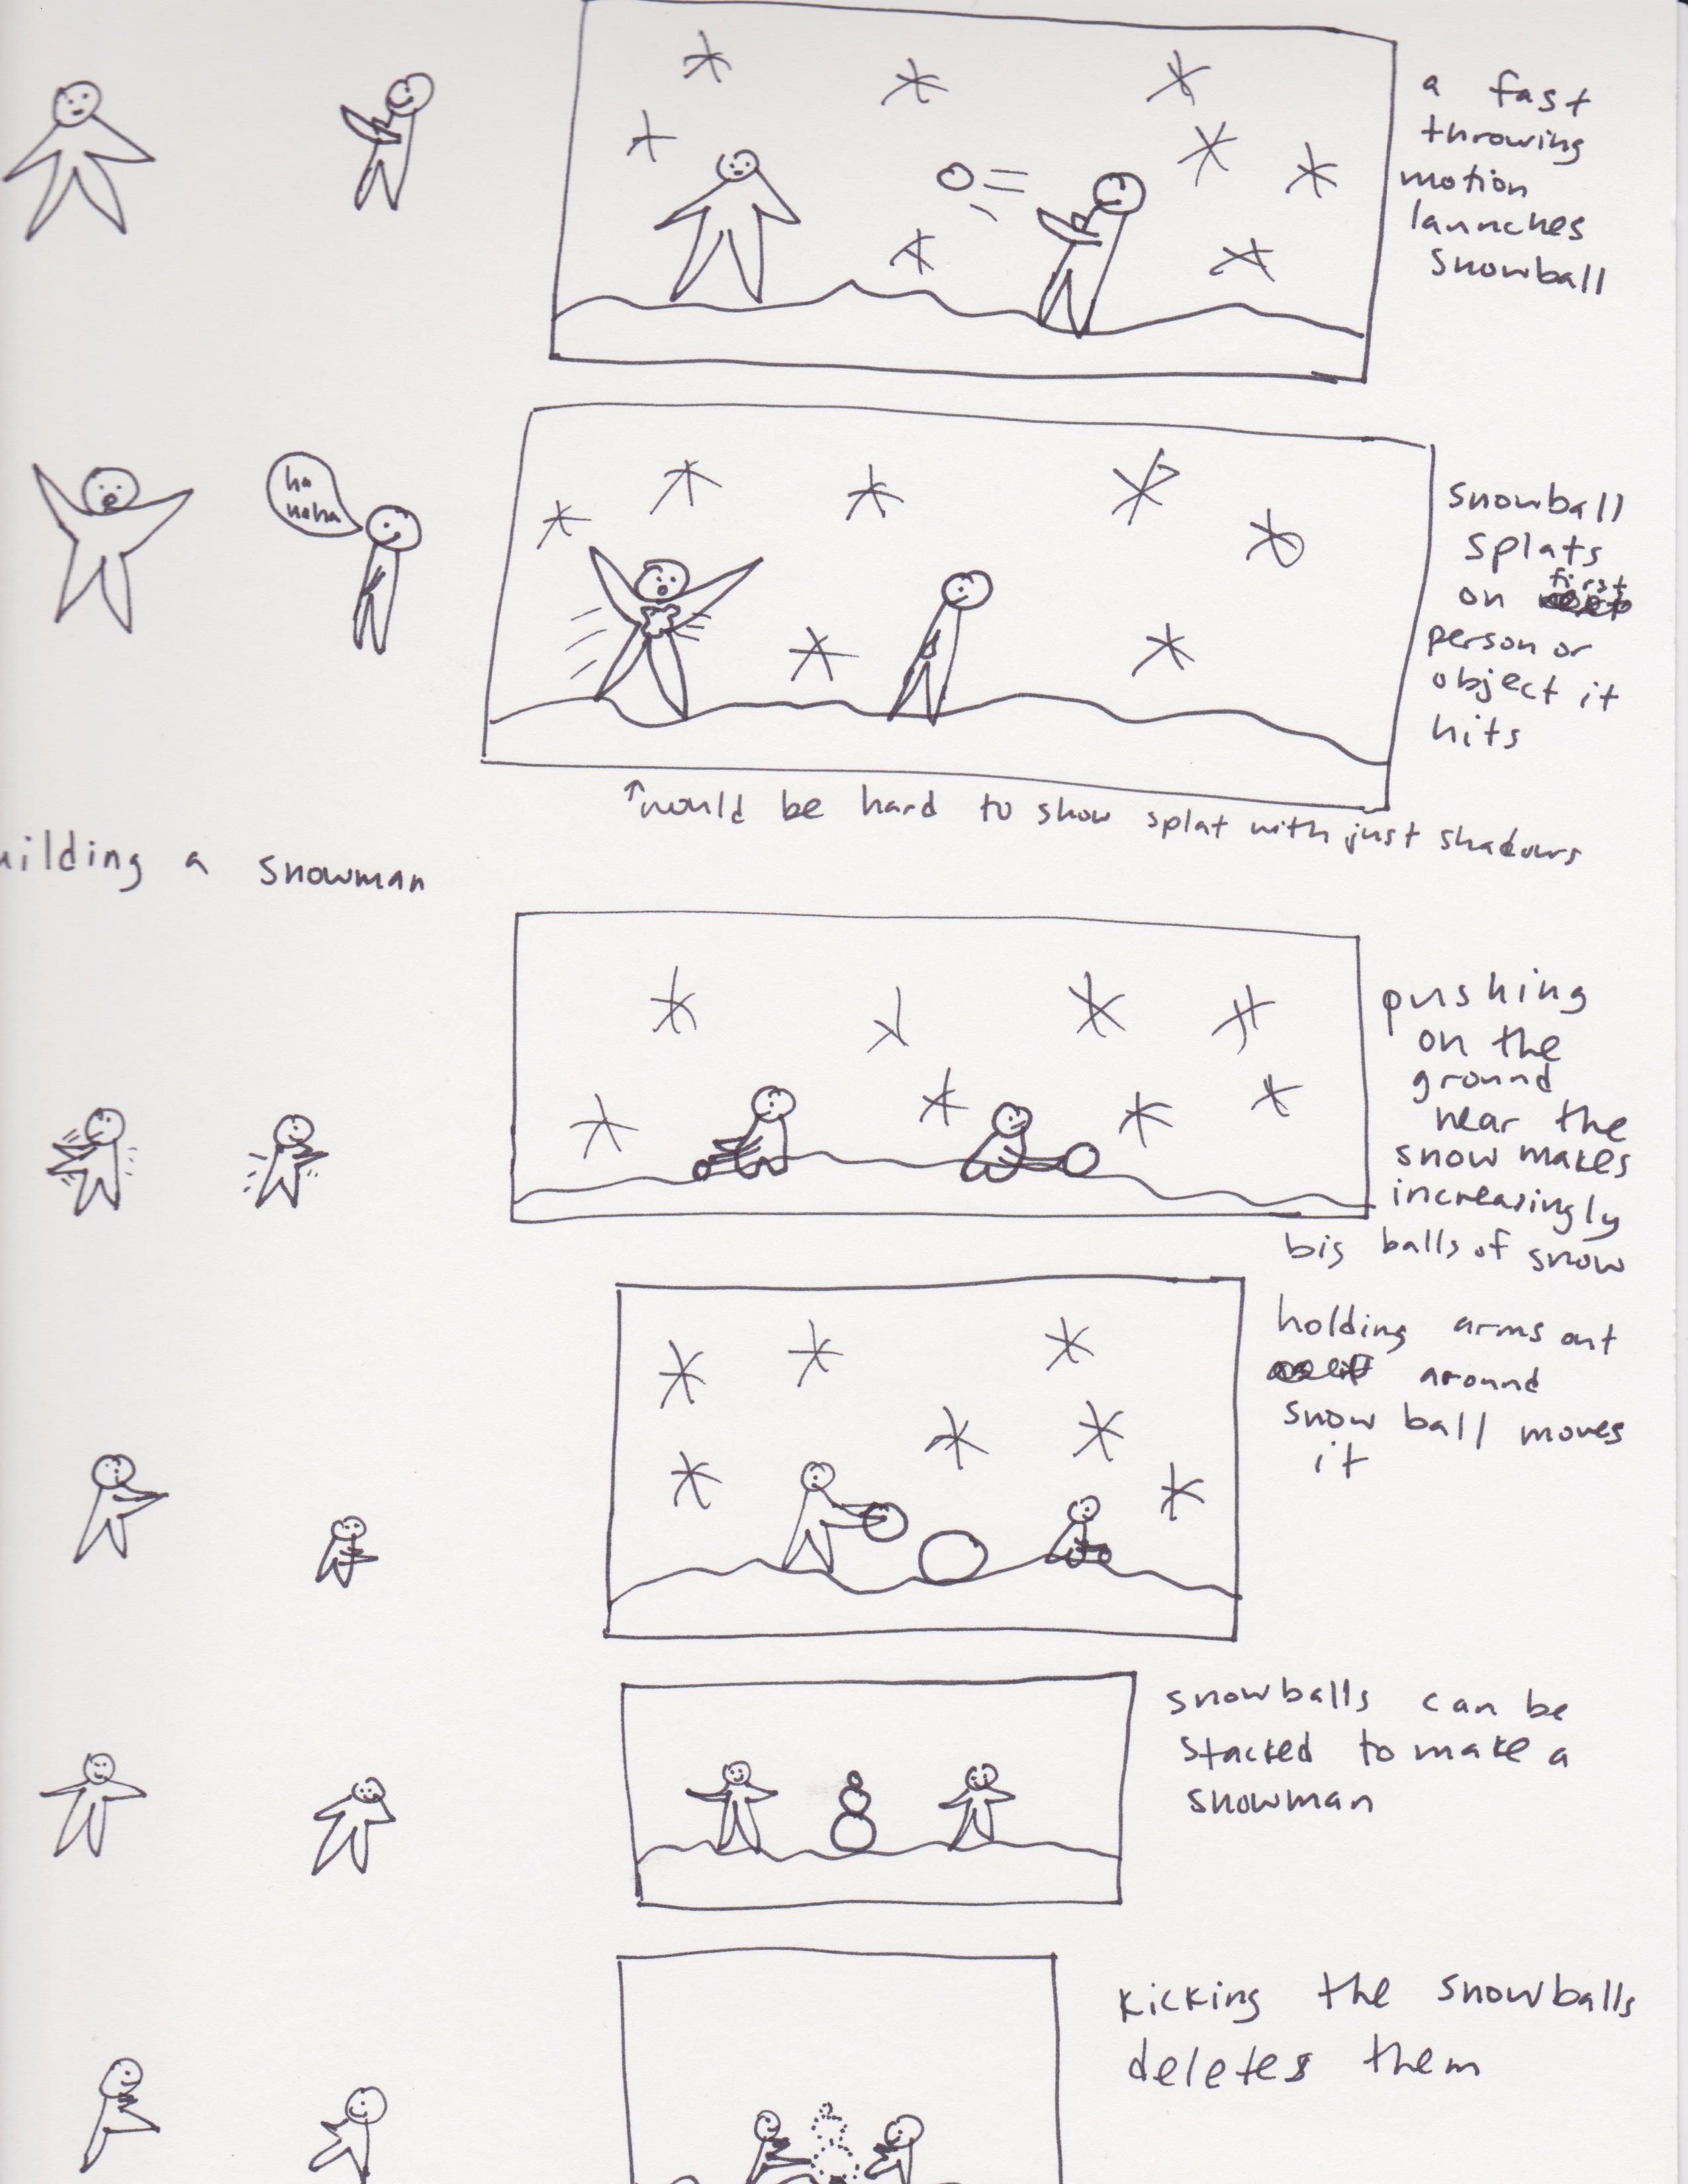 a fast
throwing
motion
launches
snowball
ha
haha
snowball
splats
first
on
person or
object it
hits
↑would be hard to show splat with just shadows
uilding a snowman
pushing
on the
ground
near the
snow makes
increasingly
big balls of snow
holding arms out
around
snow ball moves
it
snowballs can be
stacked to make a
snowman
kicking the snowballs
deletes them